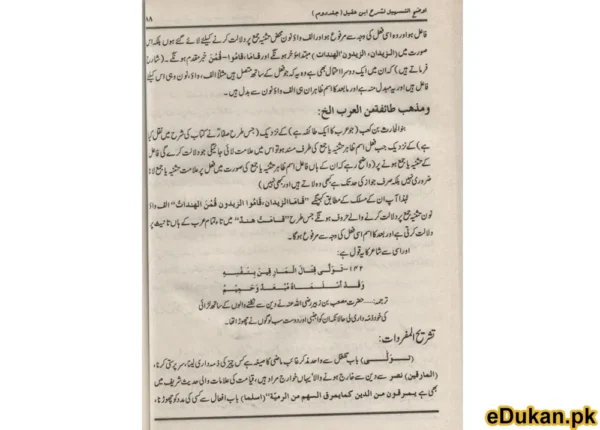 اوضح التسہیل لشرح ابن عقیل (جلد دوم) ۱۸
فاعل ہو اور وہ اسی فعل کی وجہ سے مرفوع ہو اور الف واؤ نون محض تثنیہ جمع پر دلالت کرنے کیلئے لائے گئے ہوں بلکہ اس
صورت میں (الزیدان، الزیدون، الهندات) مبتدا مؤخر ہونگے اور قاما، قاموا، قمن خبر مقدم ہونگے۔ (شارح
فرماتے ہیں) کہ ان میں ایک دوسرا احتمال بھی ہے وہ یہ کہ جو فعل کے ساتھ متصل ہیں مثلاً الف، واؤ، نون وہی اس کے
فاعل ہیں اور یہ مبدل منہ ہے اور ما بعد کا اسم ظاہر ان ہی الف واؤ نون سے بدل ہیں۔
ومذهب طائفة من العرب الخ:
بنو الحارث بن کعب (جو عرب کا ایک طائفہ ہے) کے نزدیک (جس طرح صفار نے کتاب کی شرح میں نقل کیا
ہے) کے نزدیک جب فعل اسم ظاہر تثنیہ یا جمع کی طرف مسند ہو تو اس میں علامت لائی جائیگی جو دلالت کرے گی فاعل
کے تثنیہ یا جمع ہونے پر (واضح رہے کہ ان کے ہاں فاعل اسم ظاہر تثنیہ یا جمع کی صورت میں فعل پر علامت تثنیہ یا جمع لانا
ضروری نہیں بلکہ صرف جواز کی حد تک ہے کبھی وہ لاتے ہیں اور کبھی نہیں)
لہٰذا آپ ان کے مسلک کے مطابق کہیں گے "قاما الزیدان، قاموا الزیدون قمن الهندات" الف واؤ
نون تثنیہ جمع پر دلالت کرنے والے حروف ہونگے جس طرح "قامت هند" میں تاء تمام عرب کے ہاں تانیث پر
دلالت کرتی ہے اور بعد کا اسم اسی فعل کی وجہ سے مرفوع ہوگا۔
اور اسی سے شاعر کا یہ قول ہے:
۱۴۲- تولى قتال المارقين بنفسه
وقد أسلماه مبعد وحميم
ترجمہ:.... حضرت مصعب بن زبیر رضی اللہ عنہ نے دین سے نکلنے والوں کے ساتھ لڑائی
کی خود ذمہ داری لی حالانکہ ان کو اجنبی اور دوست سب لوگوں نے چھوڑا تھا۔
تشریح المفردات:
(تولّی) باب تفعّل سے واحد مذکر غائب ماضی کا صیغہ ہے کس چیز کی ذمہ داری لینا، سرپرستی کرنا،
(المارقین) نصر سے دین سے خارج ہونے والا یہاں خوارج مراد ہیں، قیامت کی علامات والی حدیث شریف میں
بھی ہے يمرقون من الدين كما يمرق السهم من الرمية" (اسلما) باب افعال سے کسی کی مدد کو چھوڑنا،
eDukan.pk